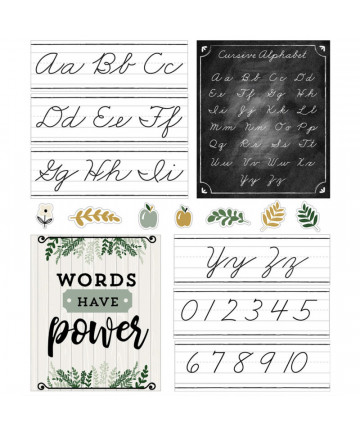 Aa Bb Cc
Dd Ee Ff
Gg Hh Ii
Cursive Alphabet
Aa Bb Cc Dd
Ee Ff Gg Hh
Ii Jj Kk Ll
Mm Nn Oo Pp
Qq Rr Ss Tt
Uu Vv Ww Xx
Yy Zz
WORDS
HAVE
power
Yy Zz
0 1 2 3 4 5
6 7 8 9 10